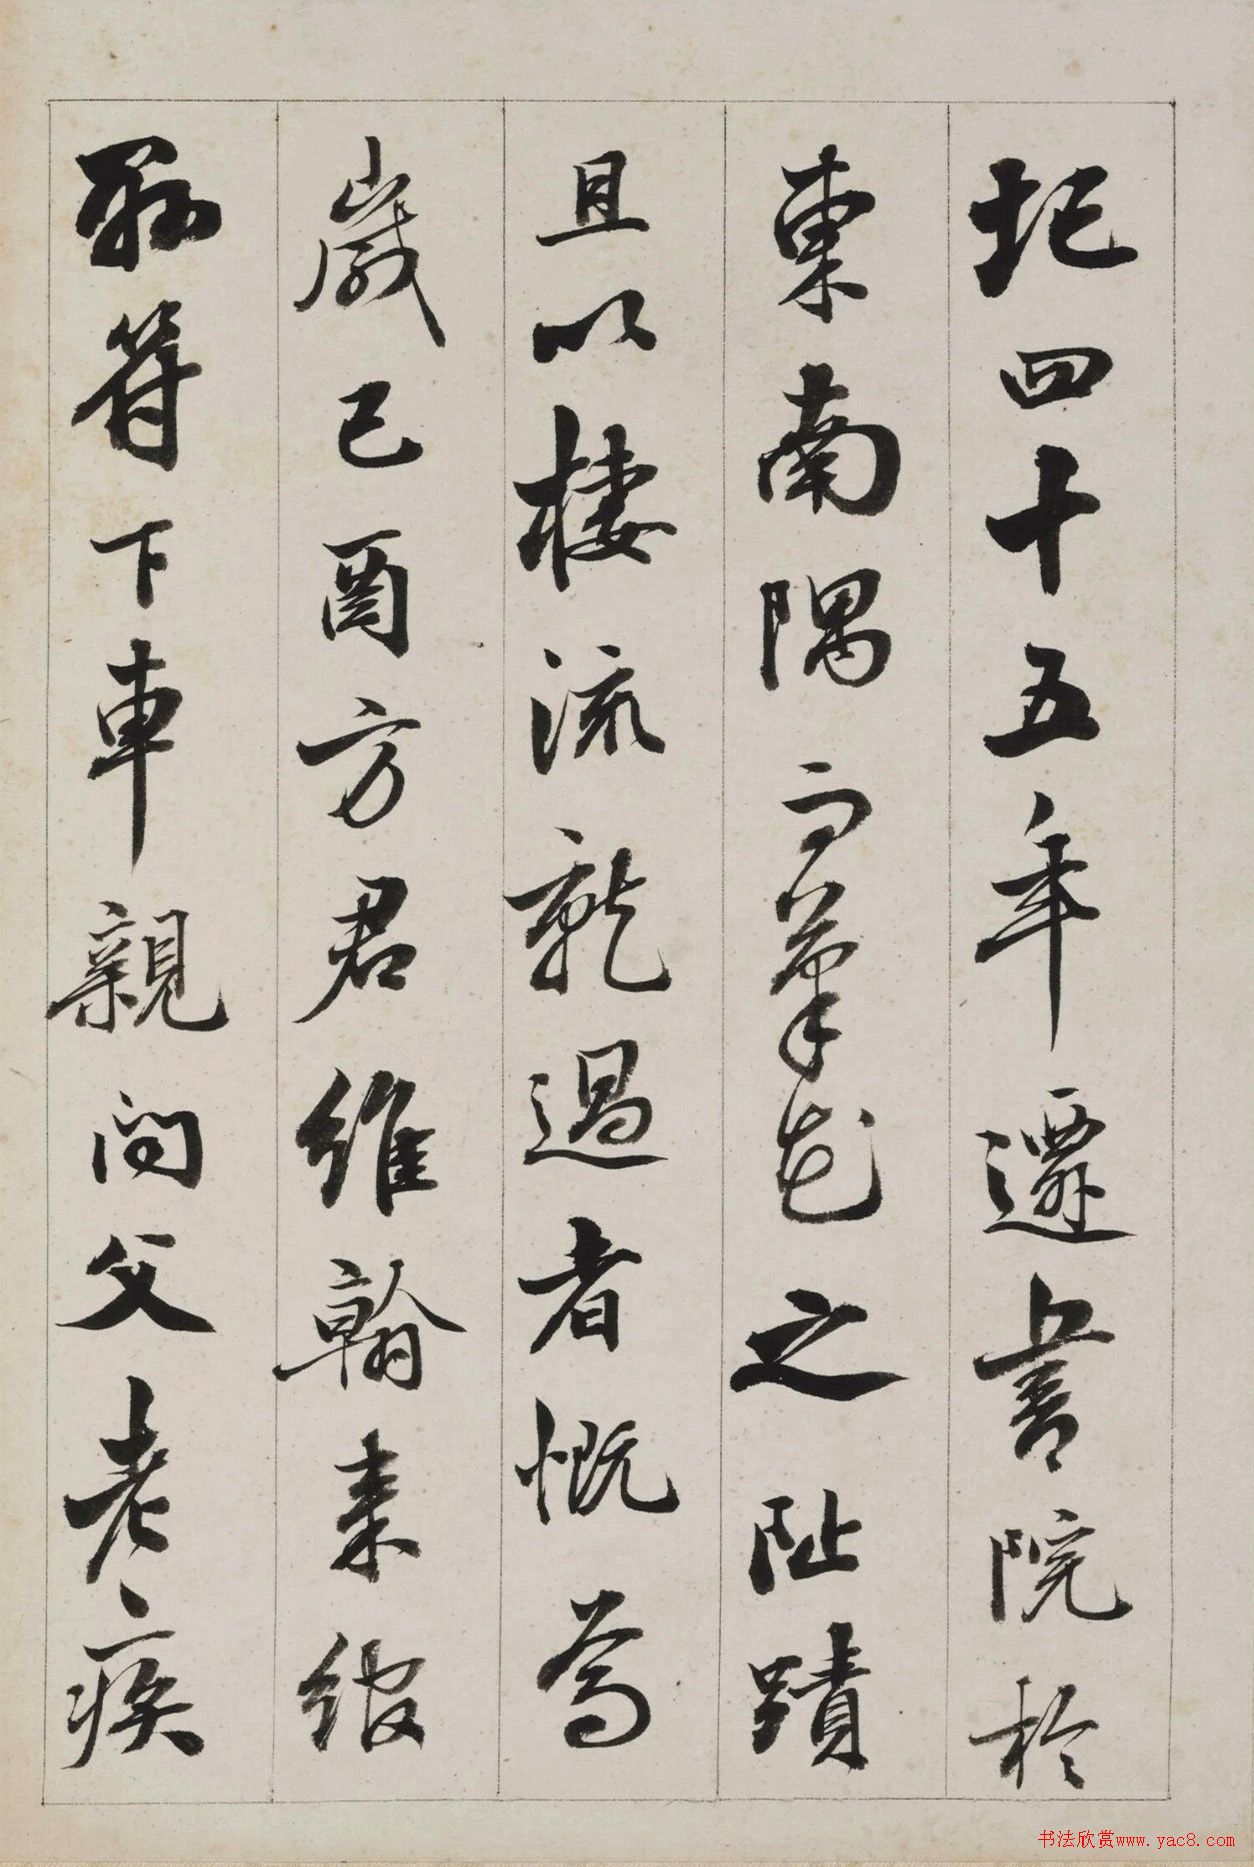 圮四十五年遷書院於
東南隅而之阯蹟
且以棲流過者慨焉
歲己酉方君維翰來綰
縣符下車親問父老疾
书法欣赏www.yac8.com